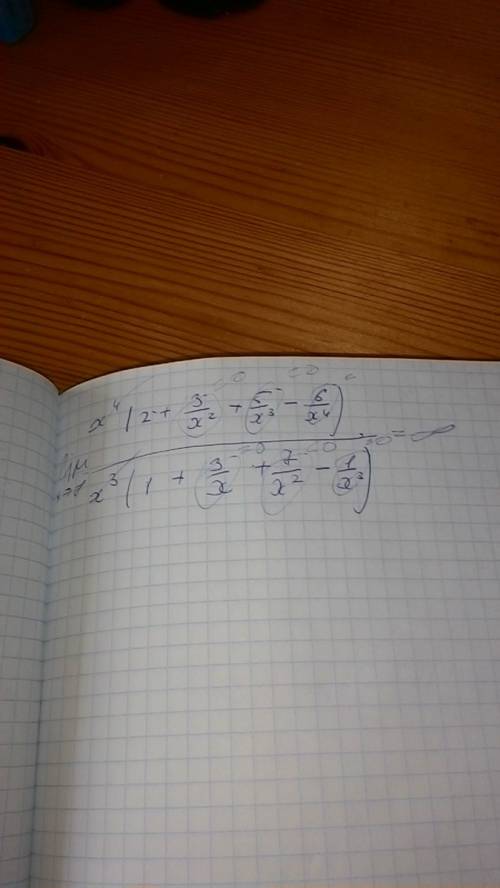 x⁴(2 + 3/x² + 5/x³ - 6/x⁴)
lim
x³(1 + 3/x + 7/x² - 1/x³) = ∞
=0 =0 =0 =0 =0